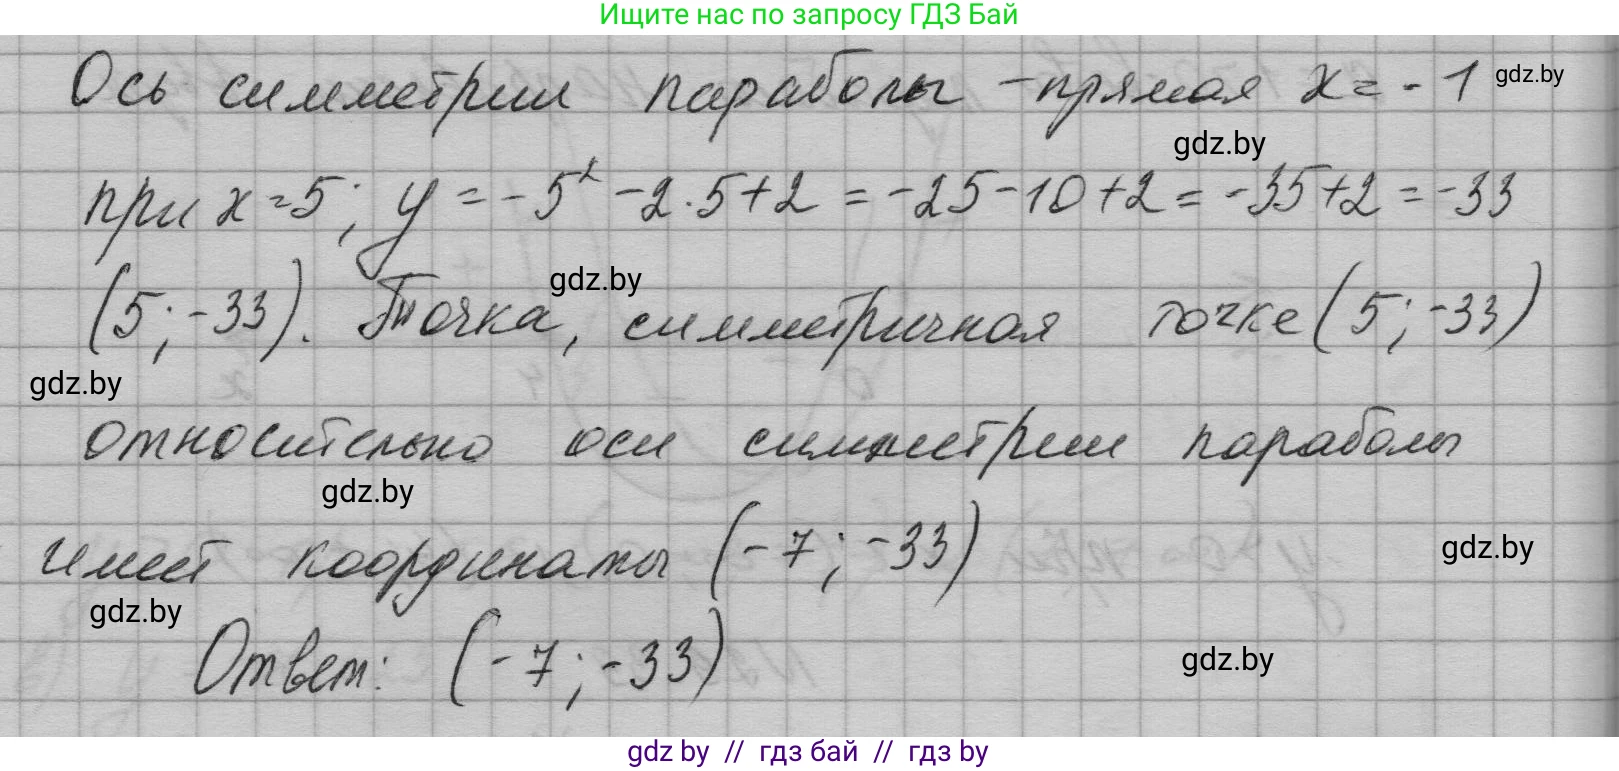 Ищите нас по запросу ГДЗ Бай
Ось симметрии параболы – прямая x = -1
gdz.by
gdz.by
при x = 5; y = -5² - 2·5 + 2 = -25 - 10 + 2 = -35 + 2 = -33
gdz.by
(5; -33). Точка, симметричная точке (5; -33)
gdz.by
относительно оси симметрии параболы
gdz.by
имеет координаты (-7; -33)
gdz.by
gdz.by
Ответ: (-7; -33)
gdz.by
gdz by // гдз бай // гдз by